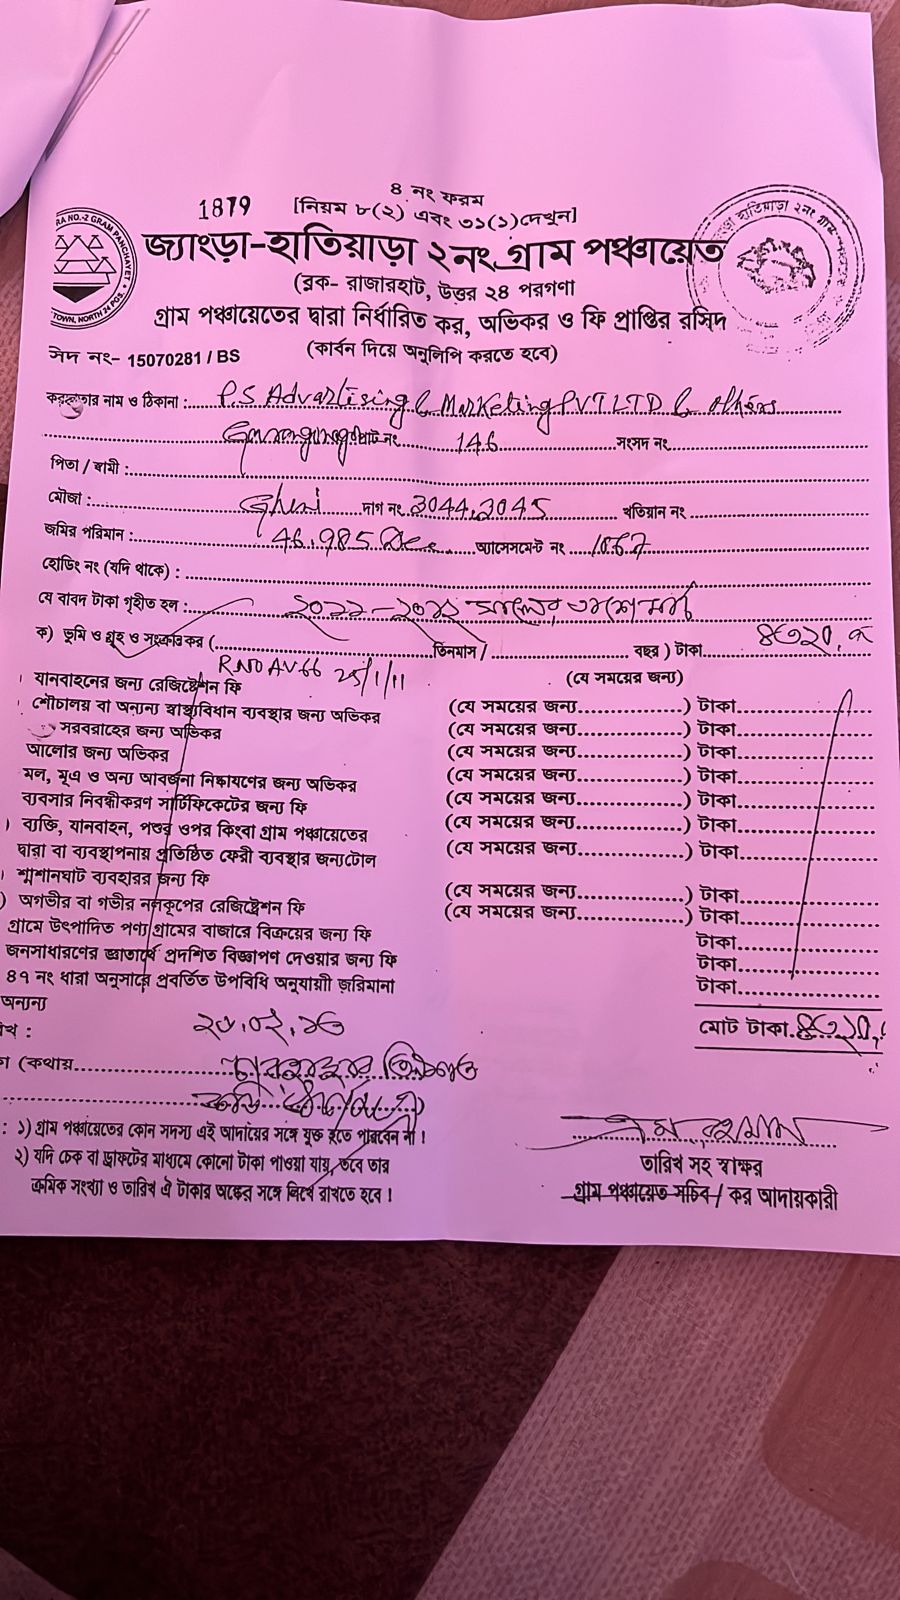 ৪ নং ফরম
1879 [নিয়ম ৮(২) এবং ৩১(১)দেখুন]
RA NO.-2 GRAM PANCHAYET
TOWN, NORTH 24 PGS.
হাতিয়াড়া ২নং গ্রাম
জ্যাংড়া-হাতিয়াড়া ২নং গ্রাম পঞ্চায়েত
(ব্লক- রাজারহাট, উত্তর ২৪ পরগণা
গ্রাম পঞ্চায়েতের দ্বারা নির্ধারিত কর, অভিকর ও ফি প্রাপ্তির রসিদ
(কার্বন দিয়ে অনুলিপি করতে হবে)
ঈদ নং- 15070281 / BS
করদাতার নাম ও ঠিকানা : P.S Advartising & Marketing PVT LTD & others
প্লট নং 146 সংসদ নং
পিতা / স্বামী :
মৌজা : Ghuni দাগ নং 3044,3045 খতিয়ান নং
জমির পরিমান : 46.985 Dec অ্যাসেসমেন্ট নং 1067
হোডিং নং (যদি থাকে) :
যে বাবদ টাকা গৃহীত হল :
ক) ভূমি ও গ্রূহ ও সংক্রান্তিকর (.......... তিনমাস / .......... বছর ) টাকা ৪৩২০
RNO AV66 25/1/11 (যে সময়ের জন্য)
যানবাহনের জন্য রেজিষ্ট্রেশন ফি
শৌচালয় বা অন্যন্য স্বাস্থ্যবিধান ব্যবস্থার জন্য অভিকর (যে সময়ের জন্য..........) টাকা..........
সরবরাহের জন্য অভিকর (যে সময়ের জন্য..........) টাকা..........
আলোর জন্য অভিকর (যে সময়ের জন্য..........) টাকা..........
মল, মূএ ও অন্য আবর্জনা নিষ্কাযণের জন্য অভিকর (যে সময়ের জন্য..........) টাকা..........
ব্যবসার নিবন্ধীকরণ সার্টিফিকেটের জন্য ফি (যে সময়ের জন্য..........) টাকা..........
) ব্যক্তি, যানবাহন, পশুর ওপর কিংবা গ্রাম পঞ্চায়েতের (যে সময়ের জন্য..........) টাকা..........
দ্বারা বা ব্যবস্থাপনায় প্রতিষ্ঠিত ফেরী ব্যবস্থার জন্যটোল (যে সময়ের জন্য..........) টাকা..........
শ্মশানঘাট ব্যবহারর জন্য ফি
) অগভীর বা গভীর নলকূপের রেজিষ্ট্রেশন ফি (যে সময়ের জন্য..........) টাকা..........
গ্রামে উৎপাদিত পণ্য গ্রামের বাজারে বিক্রয়ের জন্য ফি (যে সময়ের জন্য..........) টাকা..........
জনসাধারণের জ্ঞাতার্থে প্রদশিত বিজ্ঞাপণ দেওয়ার জন্য ফি টাকা..........
৪৭ নং ধারা অনুসারে প্রবর্তিত উপবিধি অনুযায়ী জরিমানা টাকা..........
অন্যন্য টাকা..........
রিখ : মোট টাকা ৪৩২০
কা (কথায়
: ১) গ্রাম পঞ্চায়েতের কোন সদস্য এই আদায়ের সঙ্গে যুক্ত হতে পারবেন না !
২) যদি চেক বা ড্রাফটের মাধ্যমে কোনো টাকা পাওয়া যায়, তবে তার
ক্রমিক সংখ্যা ও তারিখ ঐ টাকার অঙ্কের সঙ্গে লিখে রাখতে হবে !
তারিখ সহ স্বাক্ষর
গ্রাম পঞ্চায়েত সচিব / কর আদায়কারী